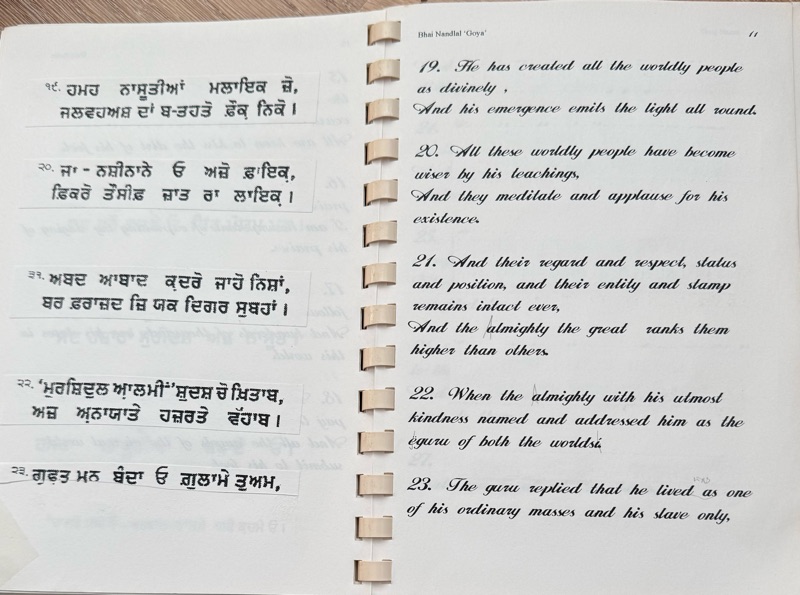 ੧੯. ਹਮਹ ਨਾਸੂਤੀਆਂ ਮਲਾਇਕ ਜ਼ੋ,
ਜਲਵਹਅਸ਼ ਦਾਂ ਬ-ਤਹਤੋ ਫ਼ੌਕ਼ ਨਿਕੋ।
੨੦. ਜਾ - ਨਸ਼ੀਨਾਨੇ ਓ ਅਜ਼ੋ ਫ਼ਾਇਕ਼,
ਫ਼ਿਕਰੋ ਤੌਸੀਫ਼ ਜ਼ਾਤ ਰਾ ਲਾਇਕ਼।
੨੧. ਅਬਦ ਆਬਾਦ ਕ਼ਦਰੋ ਜਾਹੋ ਨਿਸ਼ਾਂ,
ਬਰ ਫ਼ਰਾਜ਼ਦ ਜ਼ਿ ਯਕ ਦਿਗਰ ਸੁਬਹਾਂ।
੨੨. ‘ਮੁਰਸ਼ਿਦੁਲ ਆ਼ਲਮੀਂ’ ਸ਼ੁਦਸ਼ ਚੋ ਖ਼ਿਤਾਬ,
ਅਜ਼ ਅ਼ਨਾਯਾਤੇ ਹਜ਼ਰਤੇ ਵੱਹਾਬ।
੨੩. ਗੁਫ਼ਤ ਮਨ ਬੰਦਾ ਓ ਗ਼ੁਲਾਮੇ ਤੁਅਮ,
Bhai Nandlal ‘Goya’ 11
19. He has created all the worldly people
as divinely ,
And his emergence emits the light all round.
20. All these worldly people have become
wiser by his teachings,
And they meditate and applause for his
existence.
21. And their regard and respect, status
and position, and their entity and stamp
remains intact ever,
And the almighty the great ranks them
higher than others.
22. When the almighty with his utmost
kindness named and addressed him as the
guru of both the worlds.
23. The guru replied that he lived as one
of his ordinary masses and his slave only,